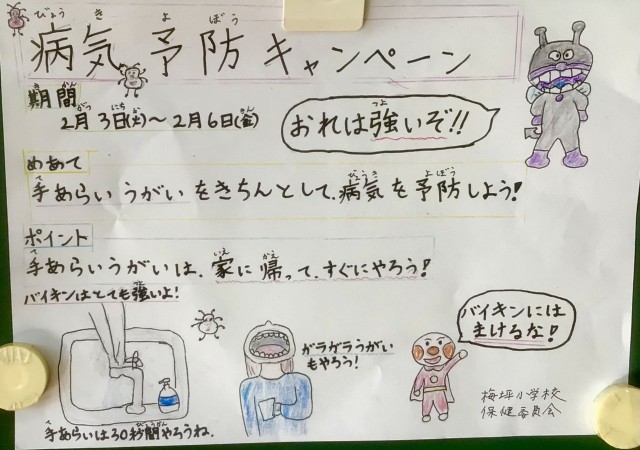 病気予防キャンペーン
期間
2月3日(火)～2月6日(金)
おれは強いぞ!!
めあて
手あらいうがいをきちんとして、病気を予防しよう!
ポイント
手あらいうがいは、家に帰って、すぐにやろう!
バイキンはとても強いよ!
手あらいは30秒間やろうね。
ガラガラうがい
もやろう!
バイキンには
まけるな!
梅坪小学校
保健委員会